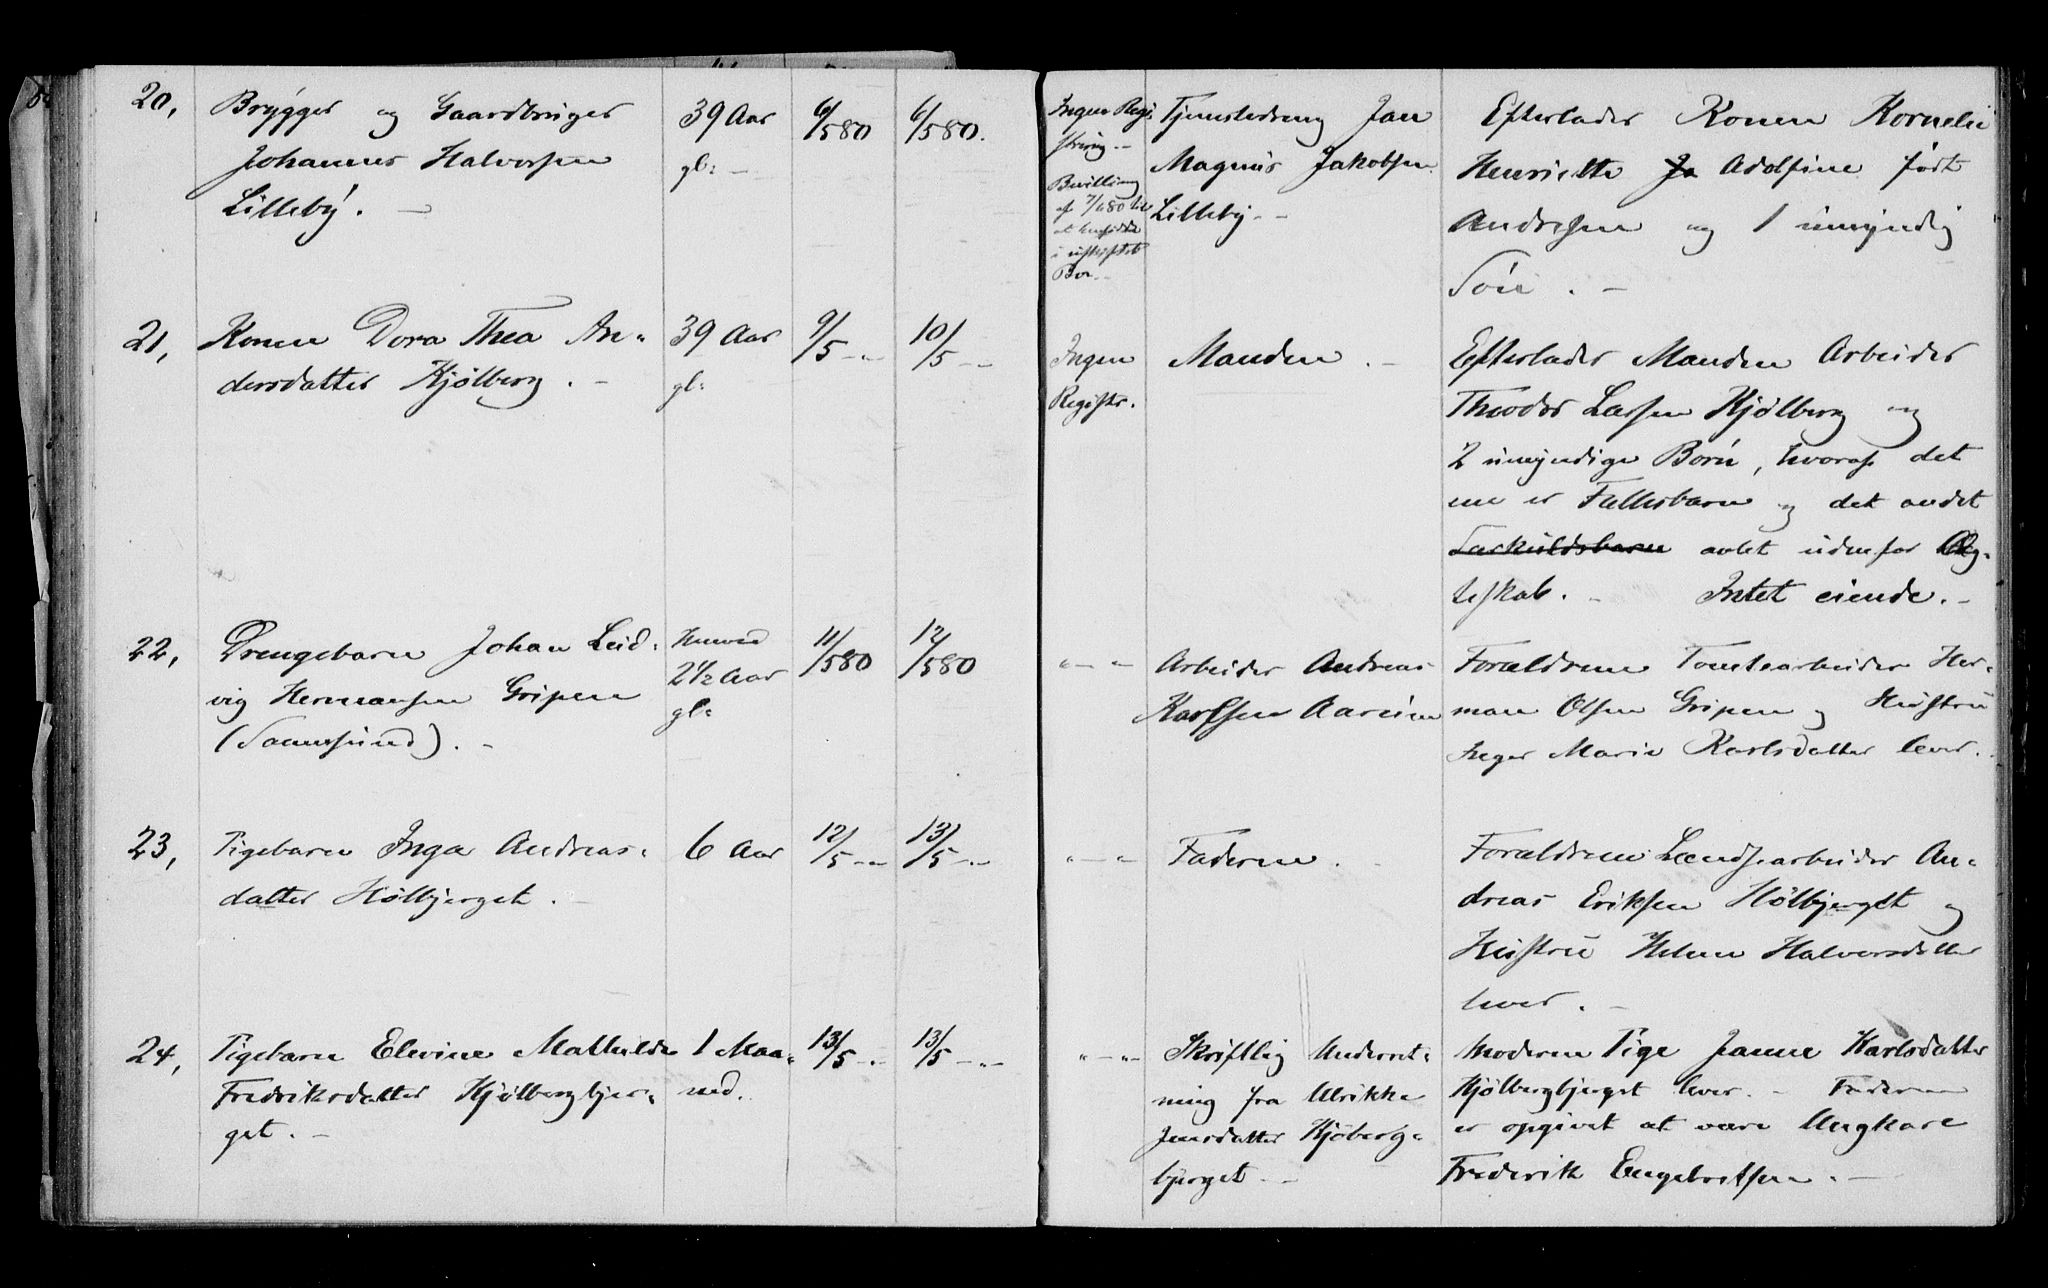 20, Brygger og Gaardbruger
Johannes Halvorsen
Lilleby. —
39 Aar
gl: —
6/5 80
6/5 80.
Ingen Regi-
strering. —
Bevilling
af 7/6 80 til
at hensidde
i uskiftet
Bo. —
Tjenestedreng Jan
Magnus Jakobsen
Lilleby. —
Efterlader Konen Kornelie
Henriette Ja Adolfine født
Andresen og 1 umyndig
Søn. —
21, Konen Dora Thea An-
dersdatter Kjølberg. —
39 Aar
gl:
9/5 — „
10/5 — „
Ingen
Registr.
Manden. —
Efterlader Manden Arbeider
Theodor Larsen Kjølberg og
2 umyndige Børn, hvoraf det
ene er Fællesbarn og det andet
Særkuldsbarn avlet udenfor Æg-
teskab. — Intet eiende. —
22, Drengebarn Johan Leid-
vig Hermansen Gripen
(Saanesund). —
Henved
2 1/2 Aar
gl:
11/5 80
12/5 80
„ — „
Arbeider Andreas
Karlsen Aarum
Forældrene Tomtearbeider Her-
man Olsen Gripen og Hustru
Inger Marie Karlsdatter lever. —
23, Pigebarn Inga Andreas-
datter Holbjerget. —
6 Aar
12/5 — „
13/5 — „
„ — „
Faderen. —
Forældrene Landsearbeider An-
dreas Eriksen Holbjerget og
Hustru Helene Halvorsdatter
lever. —
24, Pigebarn Elevine Mathilde
Fredriksdatter Kjølbergbjer-
get. —
1 Maa-
ned.
13/5 — „
13/5 — „
„ — „
Skriftlig Underret-
ning fra Ulrikke
Jensdatter Kjøberg-
bjerget. —
Moderen Pige Janne Karlsdatter
Kjølbergbjerget lever. — Faderen
er opgivet at være Ungkarl
Frederik Engebretsen. —